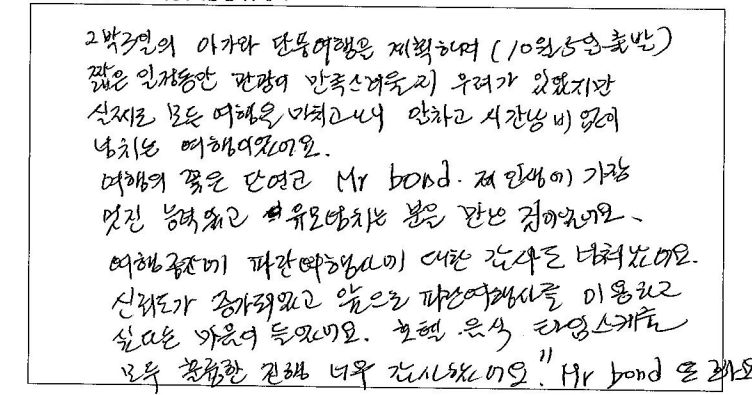 2박3일의 아가와 단풍여행은 계획하며 (10월5일출발)
짧은 일정동안 관광이 만족스러울지 우려가 있었지만
실제로 모든 여행을 마치고나니 알차고 시간낭비 없이
넘치는 여행이었어요.
여행의 꽃은 단연코 Mr bond. 제 인생에 가장
멋진 능력있고 유모넘치는 분을 만난 것이었어요.
여행중에 파란여행사에 대한 감사도 넘쳐났어요.
신뢰도가 증가되었고 앞으로 파란여행사를 이용하고
싶다는 마음이 들었어요. 호텔 음식 타임스케쥴
모두 훌륭한 진행 너무 감사했어요!! Mr bond 또